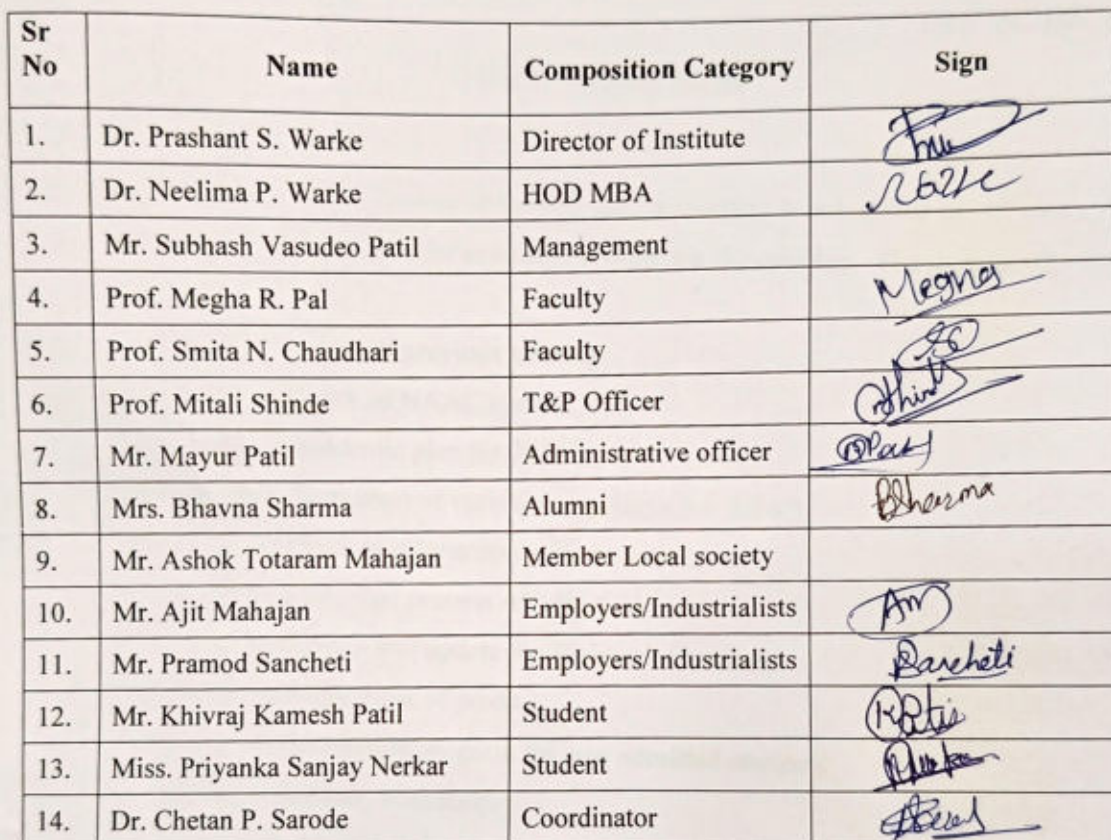 Sr No Name Composition Category Sign
1. Dr. Prashant S. Warke Director of Institute
2. Dr. Neelima P. Warke HOD MBA
3. Mr. Subhash Vasudeo Patil Management
4. Prof. Megha R. Pal Faculty Megha
5. Prof. Smita N. Chaudhari Faculty
6. Prof. Mitali Shinde T&P Officer
7. Mr. Mayur Patil Administrative officer
8. Mrs. Bhavna Sharma Alumni BSharma
9. Mr. Ashok Totaram Mahajan Member Local society
10. Mr. Ajit Mahajan Employers/Industrialists Am
11. Mr. Pramod Sancheti Employers/Industrialists Sancheti
12. Mr. Khivraj Kamesh Patil Student
13. Miss. Priyanka Sanjay Nerkar Student
14. Dr. Chetan P. Sarode Coordinator